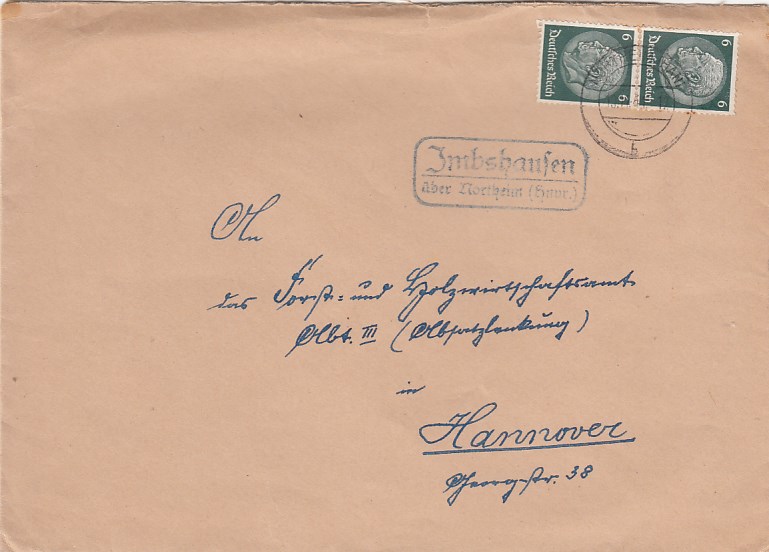 Deutsches Reich 6 6
Deutsches Reich 6 6
Imbshausen
über Northeim (Hann.)
An
das Forst- und Holzwirtschaftsamt
Abt. III (Absatzlenkung)
in
Hannover
Georgstr. 38
b